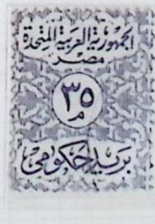 الجمهورية العربية المتحدة
مصر
٣٥
م
بريد حكومى